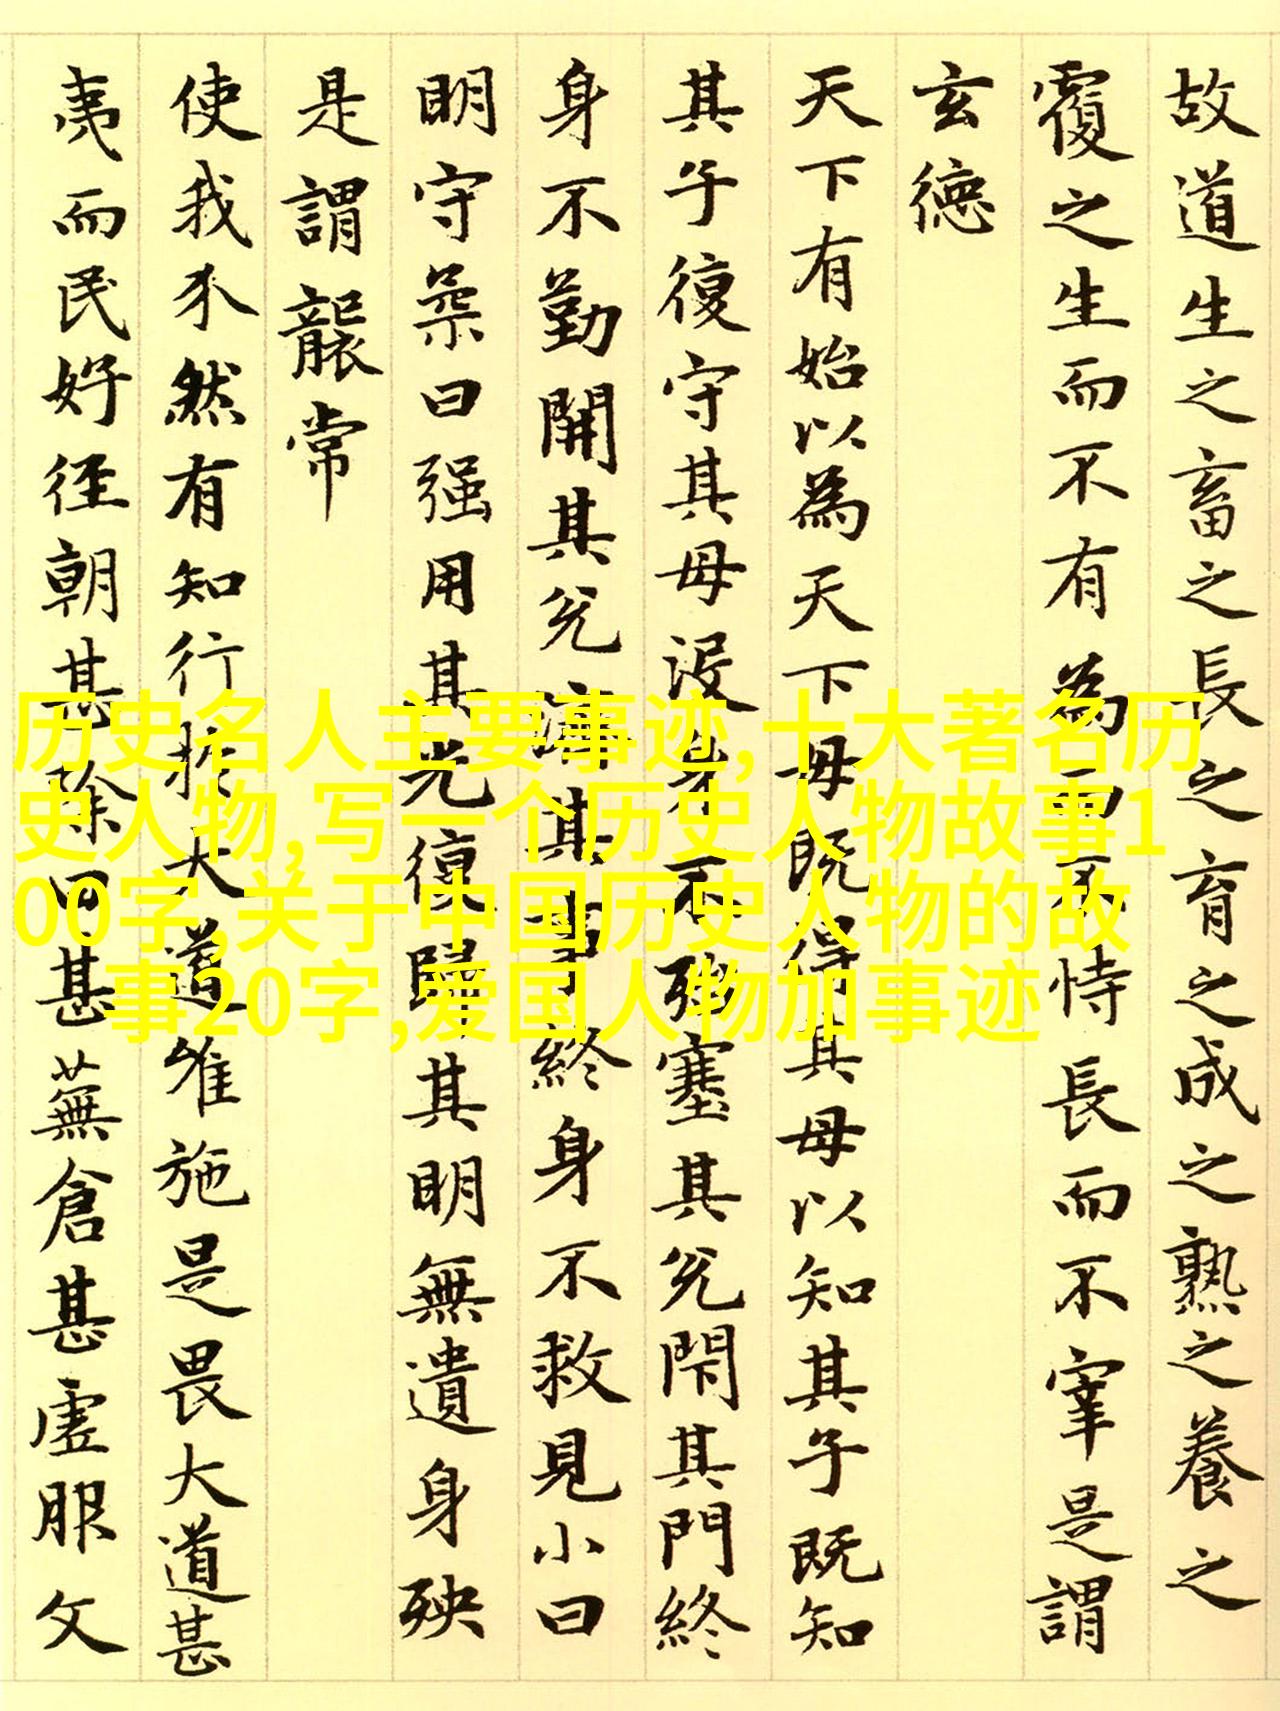 故道生之畜之長之育之成之熟之養之
覆之生而不有為而不恃長而不宰是謂
玄德
天下有始以為天下母既得其母以知其子既知
其子復守其母没身不殆塞其兑閇其門終
身不勤開其兑濟其事終身不救見小曰
明守柔曰强用其光復歸其明無遺身殃
是謂襲常
使我介然有知行於大道唯施是畏大道甚
夷而民好径朝甚除田甚蕪倉甚虚服文
历史名人主要事迹,十大著名历
史人物,写一个历史人物故事1
00字,关于中国历史人物的故
事20字,爱国人物加事迹